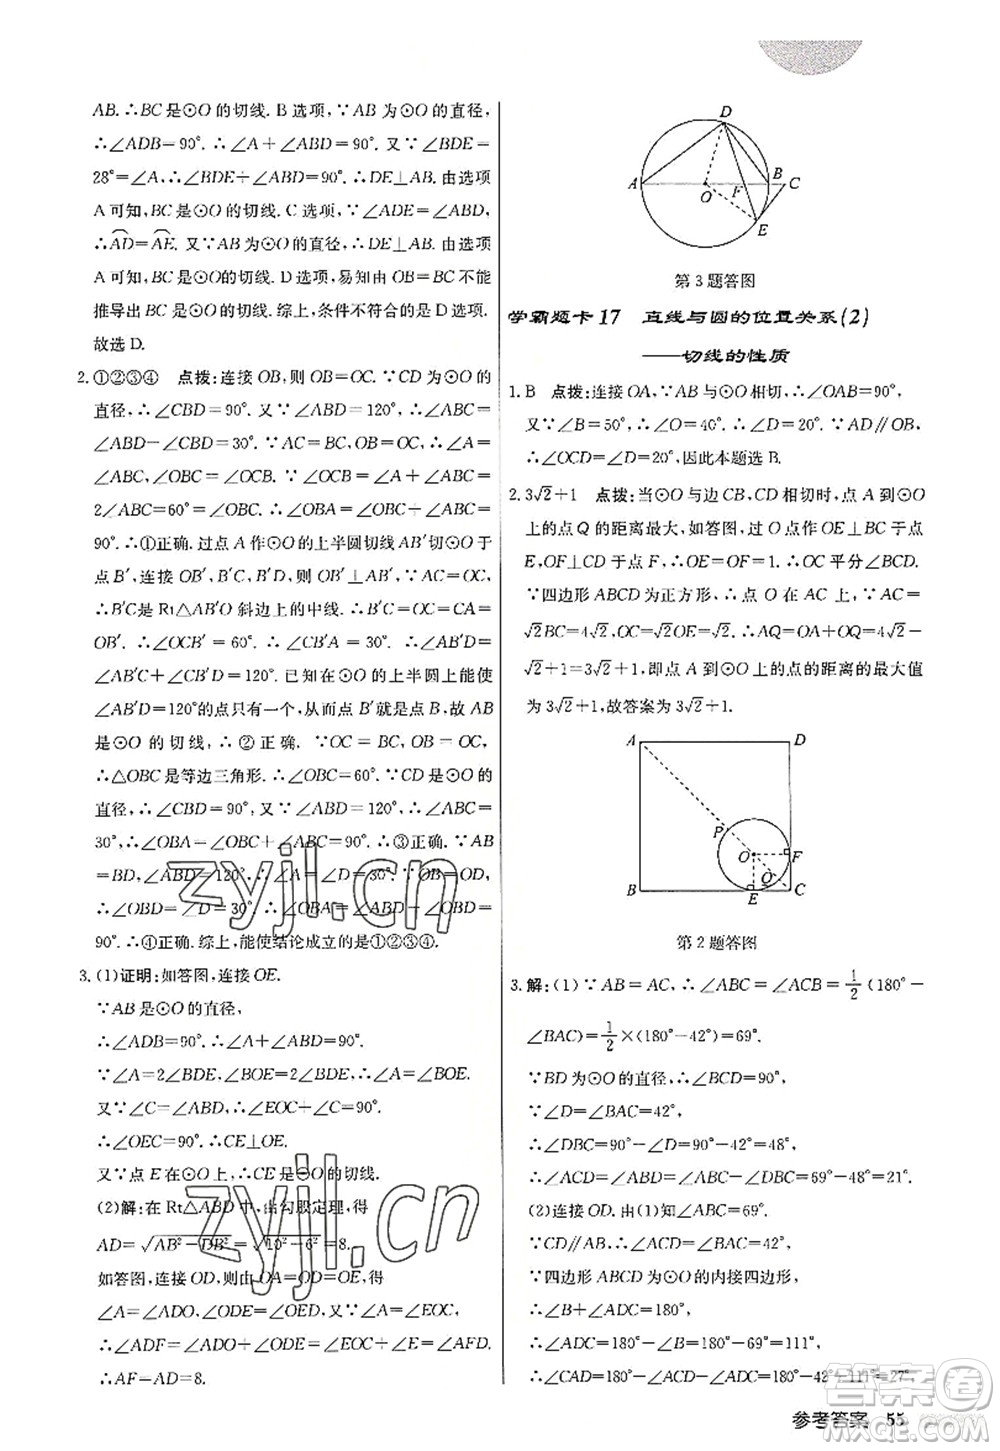 AB.∴BC是⊙O的切线.B选项,∵AB是⊙O的直径,
∴∠ADB=90°.∴∠A+∠ABD=90°.又∵∠BDE=
28°=∠A,∴∠BDE+∠ABD=90°.∴DE⊥AB.由选项
A可知,BC是⊙O的切线.C选项,∵∠ADE=∠ABD,
∴AD=AE.又∵AB为⊙O的直径,∴DE⊥AB.由选项
A可知,BC是⊙O的切线.D选项,易知由OB=BC不能
推导出BC是⊙O的切线.综上,条件不符合的是D选项.
故选D.
2.①②③④ 点拨:连接OB,则OB=OC.∵CD为⊙O的
直径,∴∠CBD=90°.又∵∠ABD=120°,∴∠ABC=
∠ABD-∠CBD=30°.∵AC=BC,OB=OC,∴∠A=
∠ABC,∠OBC=∠OCB.∵∠OCB=∠A+∠ABC=
2∠ABC=60°=∠OBC.∴∠OBA=∠OBC+∠ABC=
90°.∴①正确.过点A作⊙O的上半圆切线AB′切⊙O于
点B′,连接OB′,B′C,B′D.∴∠AB′O=90°.∵AC=CO,
∴B′C是Rt△AB′O斜边上的中线.∴B′C=OC=CA=
OB′.∴∠OCB′=60°.∴∠CB′A=30°.∴∠AB′D=
∠AB′C+∠CB′D=120°.已知在⊙O的上半圆上能使得
∠AB′D=120°的点只有一个,从而点B′就是点B,故AB
是⊙O的切线,∴②正确.∵OC=BC,OB=OC,
∴△OBC是等边三角形.∴∠OBC=60°.∵CD是⊙O的
直径,∴∠CBD=90°,又∵∠ABD=120°,∴∠ABC=
30°,∴∠OBA=∠OBC+∠ABC=90°.∴③正确.∵AB
=BD,∠ABD=120°,∴∠A=∠D=30°.∵OB=OD,
∴∠OBD=∠D=30°,∴∠OBA=∠ABD-∠OBD=
90°.∴④正确.综上,能使结论成立的是①②③④.
3.(1)证明:如答图,连接OE.
∵AB是⊙O的直径,
∴∠ADB=90°.∴∠A+∠ABD=90°.
∵∠A=∠BDE,∠BOE=2∠BDE,∴∠A=∠BOE.
又∵∠C=∠ABD,∴∠EOC+∠C=90°.
∴∠OEC=90°.∴CE⊥OE.
又∵点E在⊙O上,∴CE是⊙O的切线.
(2)解:在Rt△ABD中,由勾股定理,得
AD=√AB²-DB²=√10²-6²=8.
如答图,连接OD,则由OA=OD=OE,得
∠A=∠ADO,∠ODE=∠OED,又∵∠A=∠EOC,
∴∠ADF=∠ADO+∠ODE=∠EOC+∠E=∠AFD.
∴AF=AD=8.
D
A
B
C
O
F
E
第3题答图
学霸题卡17 直线与圆的位置关系(2)
——切线的性质
1.B 点拨:连接OA,∵AB与⊙O相切,∴∠OAB=90°,
又∵∠B=50°,∴∠O=40°.∴∠D=20°.∵AD∥OB,
∴∠OCD=∠D=20°,因此本题选B.
2.3√2+1 点拨:当⊙O与边CB,CD相切时,点A到⊙O
上的点Q的距离最大,如答图,过O点作OE⊥BC于点
E,OF⊥CD于点F.∴OE=OF=1.∴OC平分∠BCD.
∵四边形ABCD为正方形,∴点O在AC上,∵AC=
√2BC=4√2,OC=√2OE=√2.∴AQ=OA+OQ=4√2-
√2+1=3√2+1,即点A到⊙O上的点的距离的最大值
为3√2+1,故答案为3√2+1.
A
D
P
O
F
Q
B
E
C
第2题答图
3.解:(1)∵AB=AC,∴∠ABC=∠ACB=1/2(180°-
∠BAC)=1/2×(180°-42°)=69°.
∵BD为⊙O的直径,∴∠BCD=90°,
∵∠D=∠BAC=42°,
∴∠DBC=90°-∠D=90°-42°=48°,
∴∠ACD=∠ABD=∠ABC-∠DBC=69°-48°=21°.
(2)连接OD.由(1)知∠ABC=69°.
∵CD∥AB,∴∠ACD=∠BAC=42°,
∵四边形ABCD为⊙O的内接四边形,
∴∠B+∠ADC=180°,
∴∠ADC=180°-∠B=180°-69°=111°,
∴∠CAD=180°-∠ACD-∠ADC=180°-42°-111°=27°,
参考答案 55
zyjl.cn
zyjl.cn
答案圈
MXQE.COM